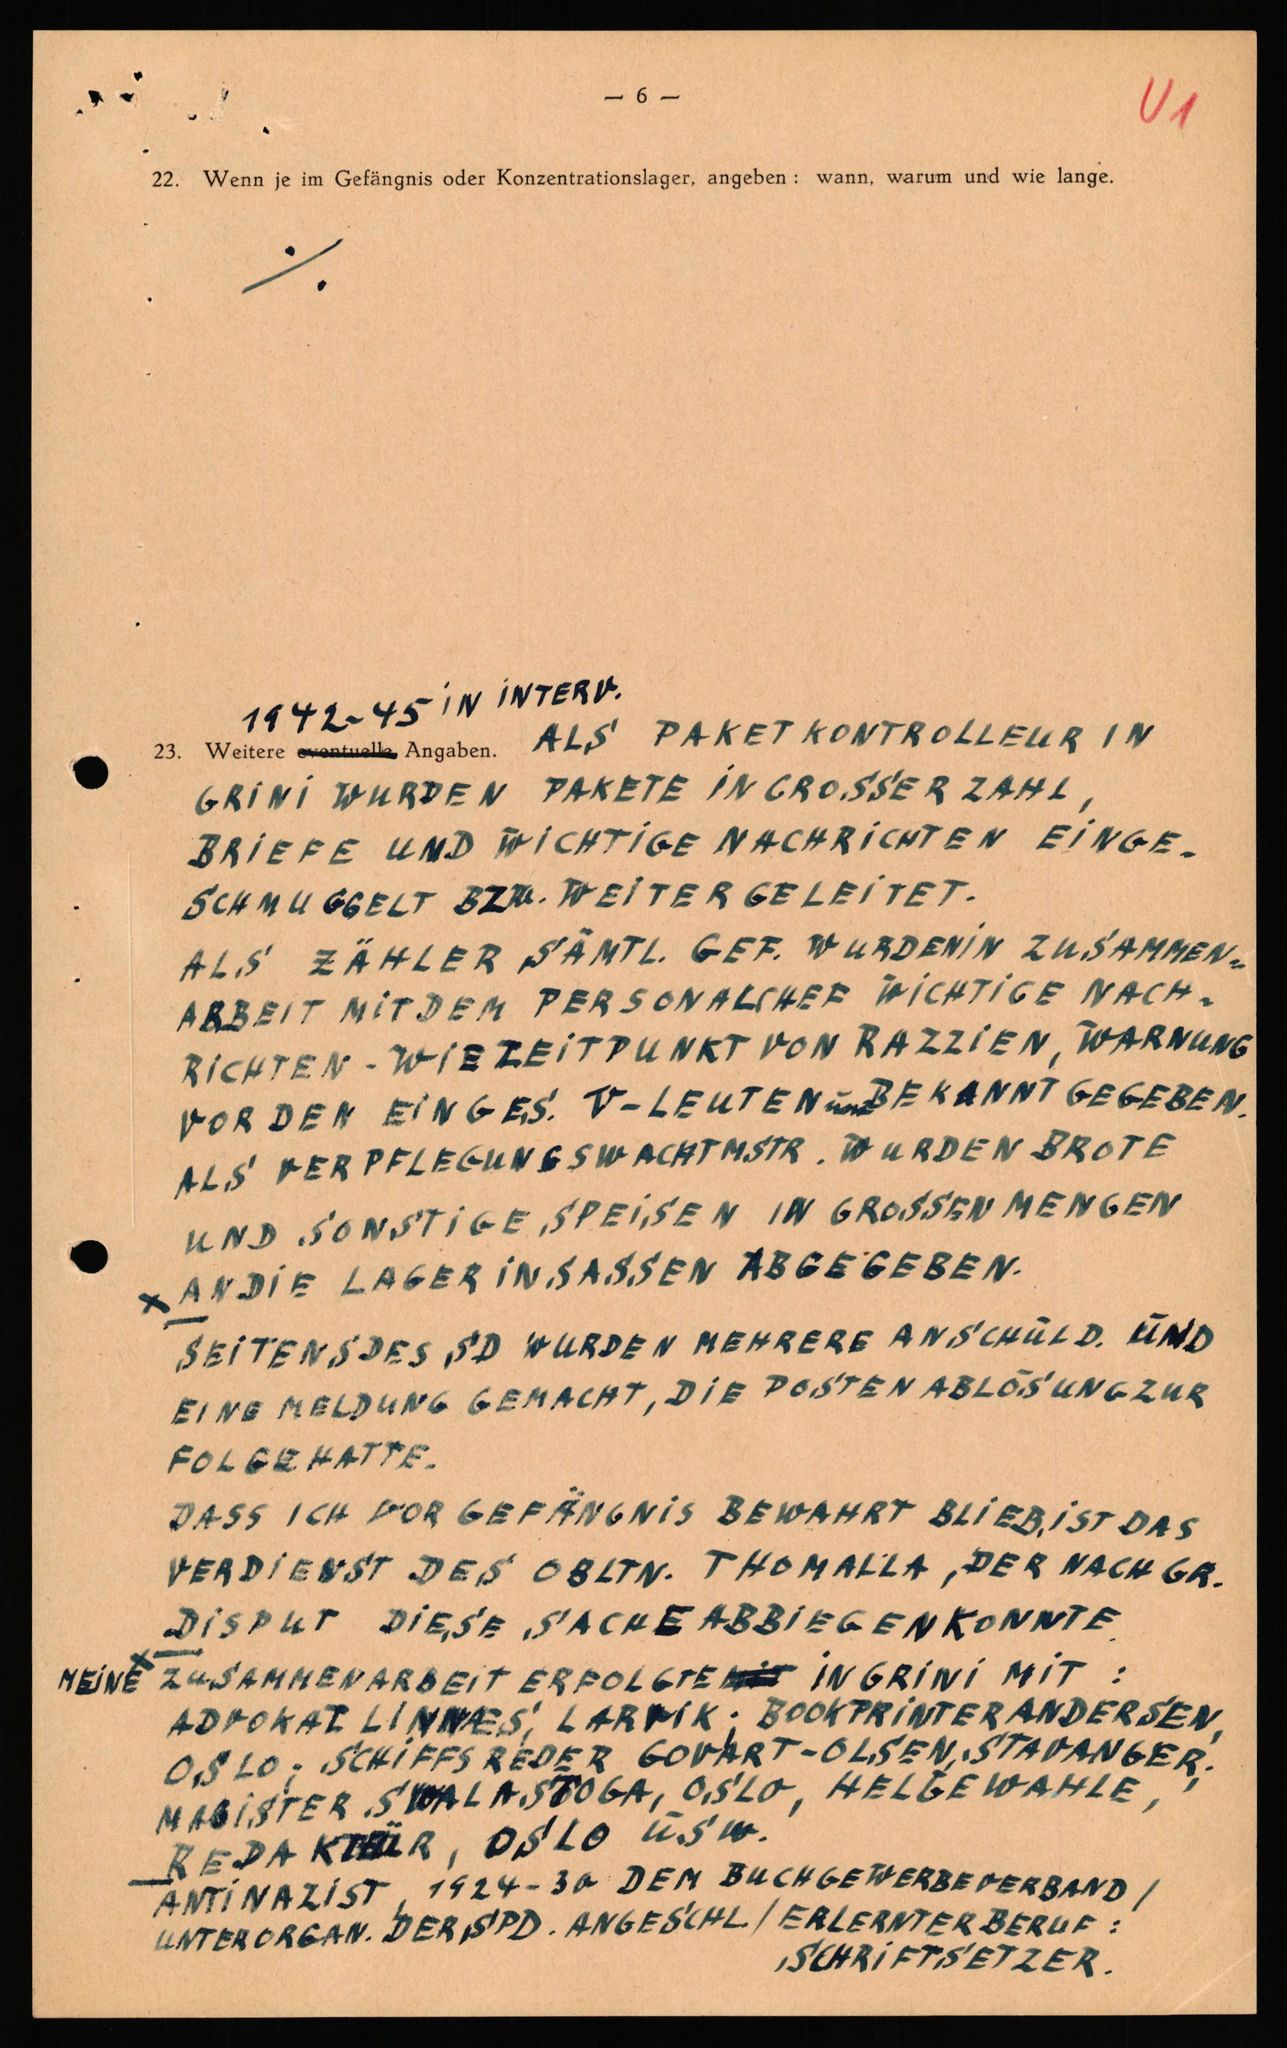 — 6 —
U1
22. Wenn je im Gefängnis oder Konzentrationslager, angeben: wann, warum und wie lange.
·/.
1942-45 IN INTERV.
23. Weitere eventuelle Angaben. ALS PAKETKONTROLLEUR IN
GRINI WURDEN PAKETE IN GROSSER ZAHL,
BRIEFE UND WICHTIGE NACHRICHTEN EINGE-
SCHMUGGELT BZW. WEITERGELEITET.
ALS ZÄHLER SÄMTL. GEF. WURDEN IN ZUSAMMEN-
ARBEIT MIT DEM PERSONALCHEF WICHTIGE NACH-
RICHTEN - WIE ZEITPUNKT VON RAZZIEN, WARNUNG
VOR DEN EINGES. V-LEUTEN USW BEKANNTGEGEBEN.
ALS VERPFLEGUNGSWACHTMSTR. WURDEN BROTE
UND SONSTIGE SPEISEN IN GROSSEN MENGEN
x AN DIE LAGERINSASSEN ABGEGEBEN.
SEITENS DES SD WURDEN MEHRERE ANSCHULD. UND
EINE MELDUNG GEMACHT, DIE POSTENABLÖSUNG ZUR
FOLGE HATTE.
DASS ICH VOR GEFÄNGNIS BEWAHRT BLIEB, IST DAS
VERDIENST DES OBLTN. THOMALLA, DER NACH GR.
DISPUT DIESE SACHE ABBIEGEN KONNTE.
MEINE x ZUSAMMENARBEIT ERFOLGTE IN GRINI MIT :
ADVOKAT LINNÆS, LARVIK; BOOKPRINTER ANDERSEN,
OSLO; SCHIFFSREDER GOVART-OLSEN, STAVANGER;
MAGISTER SWALASTOGA, OSLO, HELGE WAHLE,
REDAKTÜR, OSLO USW.
ANTINAZIST, 1924-30 DEM BUCHGEWERBEVERBAND /
UNTERORGAN. DER SPD. ANGESCHL / ERLERNTER BERUF :
SCHRIFTSETZER.